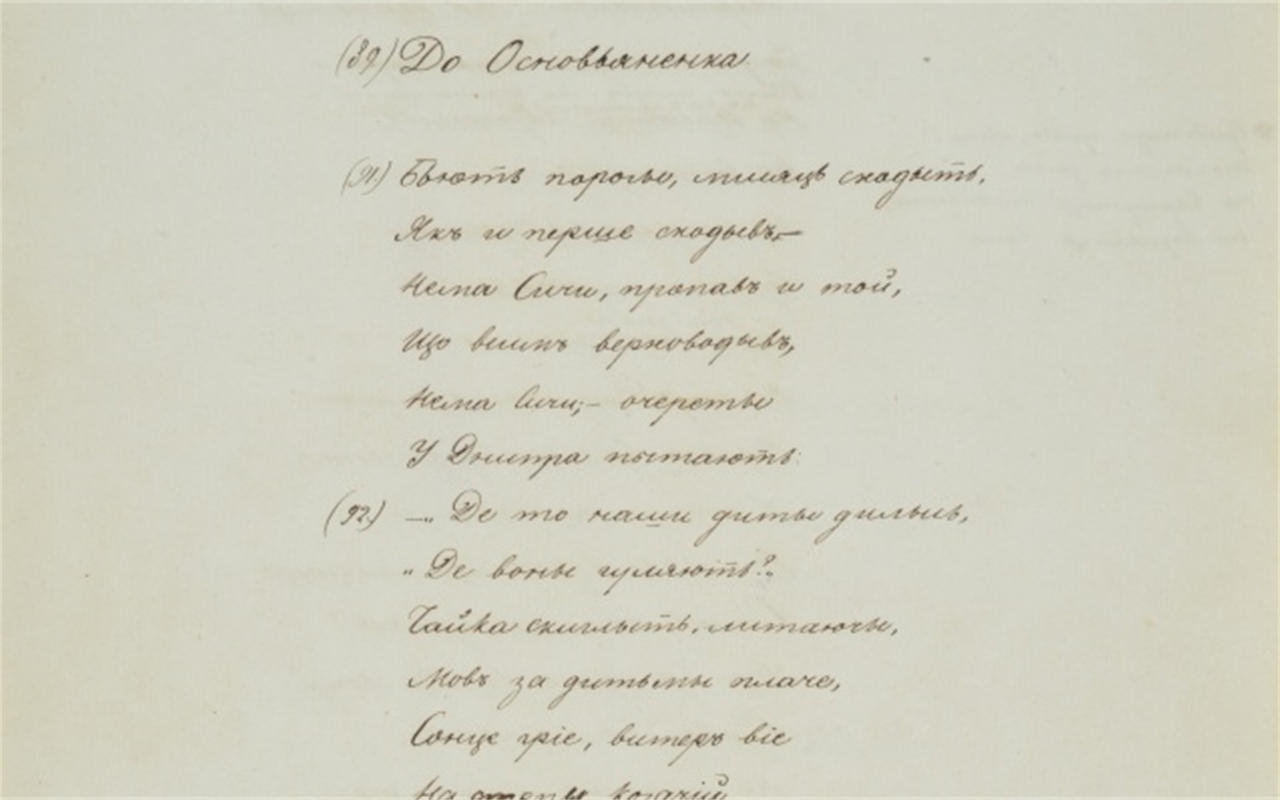 (39.) До Основьяненка
(91.) Бьють порогы, мисяць сходыть,
Якъ и перше сходывъ,—
Нема Сичи, пропавъ и той,
Що всимъ верховодывъ,
Нема Сичи;— очереты
У Днипра пытають:
(92.) —„ Де то наши диты дилысь,
„ Де воны гуляють?„
Чайка скиглыть, литаючы,
Мовъ за дитьмы плаче,
Сонце гріе, витеръ віе
На степы козачій